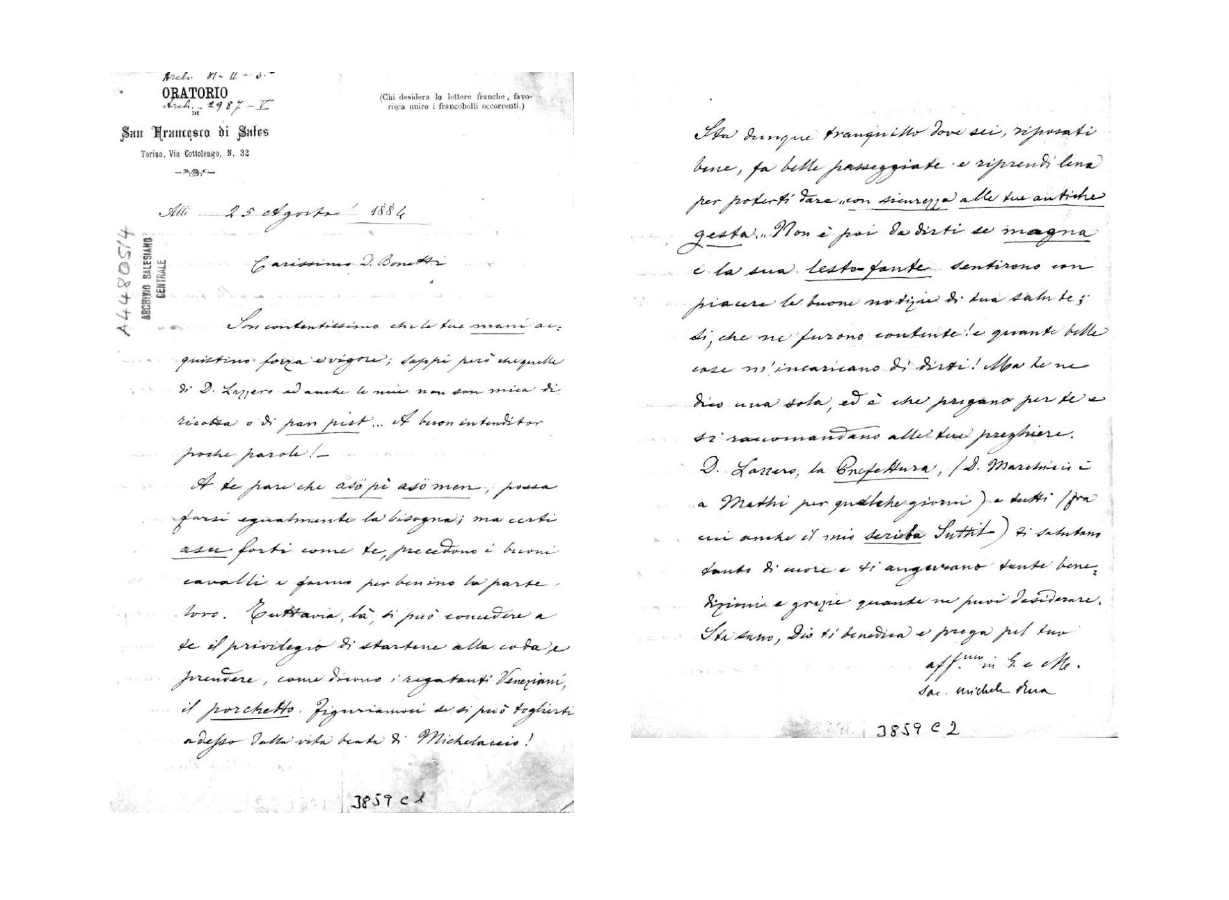 Arch.
ORATORIO
Arch. - 2987 - V
DI
San Francesco di Sales
Torino, Via Cottolengo, N. 32
(Chi desidera le lettere franche, favo-
risca unire i francobolli occorrenti.)
Alli 25 Agosto 1884
A4480514
ARCHIVIO SALESIANO
CENTRALE
Carissimo D. Bonetti
Son contentissimo che le tue mani ac-
quistino forza e vigore; sappi però che quelle
di D. Lazzero ed anche le mie non son mica di
ricotta o di pan pist... A buon intenditor
poche parole! -
A te pare che asö pi asö men, possa
farsi egualmente la bisogna; ma certi
asu forti come te, precedono i buoni
cavalli e fanno per benino la parte
loro. Tuttavia, là, si può concedere a
te il privilegio di startene alla coda, e
prendere, come dicono i regatanti Veneziani,
il porchetto. Figuriamoci se si può toglierti
adesso dalla vita beata di Michelaccio!
3859 C 1
Sta dunque tranquillo dove sei, riposati
bene, fa belle passeggiate e riprendi lena
per poterti dare „con sicurezza alle tue antiche
gesta„. Non è poi da dirti se magna
e la sua lesto-fante sentirono con
piacere le buone notizie di tua salute;
sì, che ne furono contente! e quante belle
cose m'incaricano di dirti! Ma te ne
dico una sola, ed è che pregano per te e
si raccomandano alle tue preghiere.
D. Lazzero, la Prefettura, (D. Marchisio è
a Mathi per qualche giorni) e tutti (fra
cui anche il mio scriba Suttil) ti salutano
tanto di cuore e ti augurano tante bene-
dizioni e grazie quante ne puoi desiderare.
Sta sano, Dio ti benedica e prega pel tuo
aff.mo in G. e M.
Sac. Michele Rua
3859 C 2